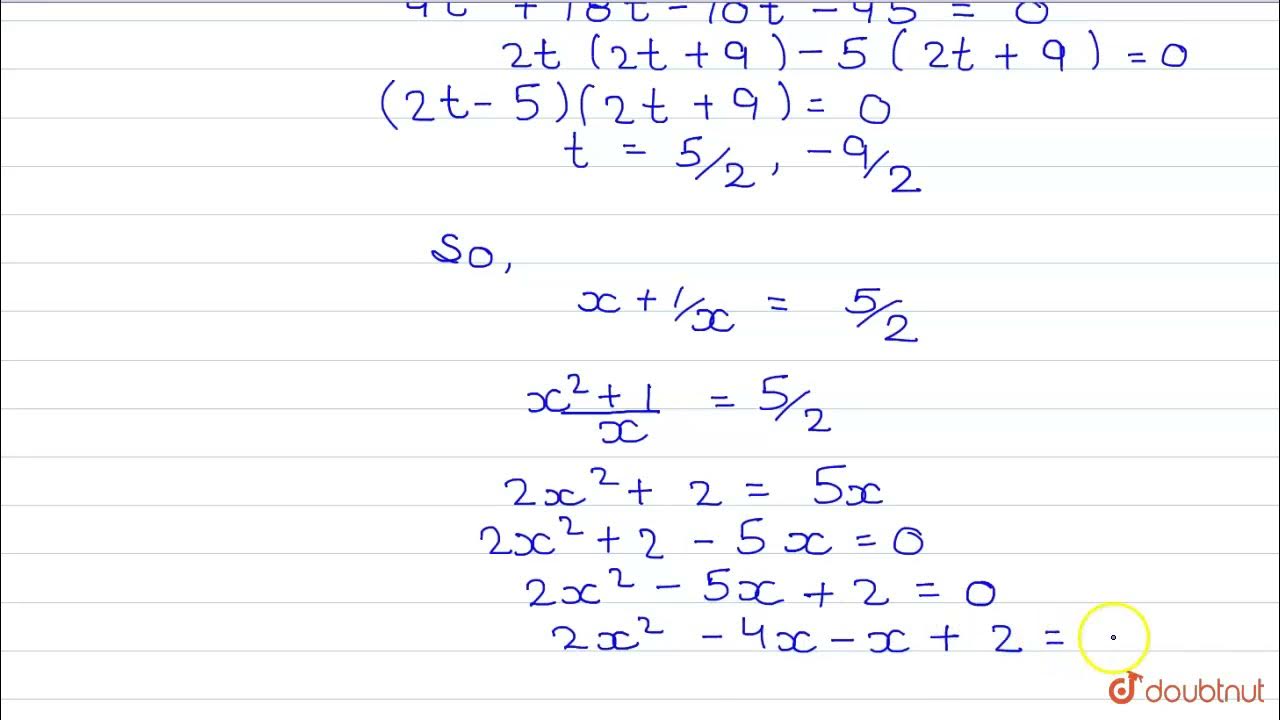 4t + 18t - 10t - 45 = 0
2t (2t + 9) - 5 (2t + 9) = 0
(2t - 5)(2t + 9) = 0
t = 5/2, -9/2
So,
x + 1/x = 5/2
x² + 1 = 5/2
x
2x² + 2 = 5x
2x² + 2 - 5x = 0
2x² - 5x + 2 = 0
2x² - 4x - x + 2 =
doubtnut